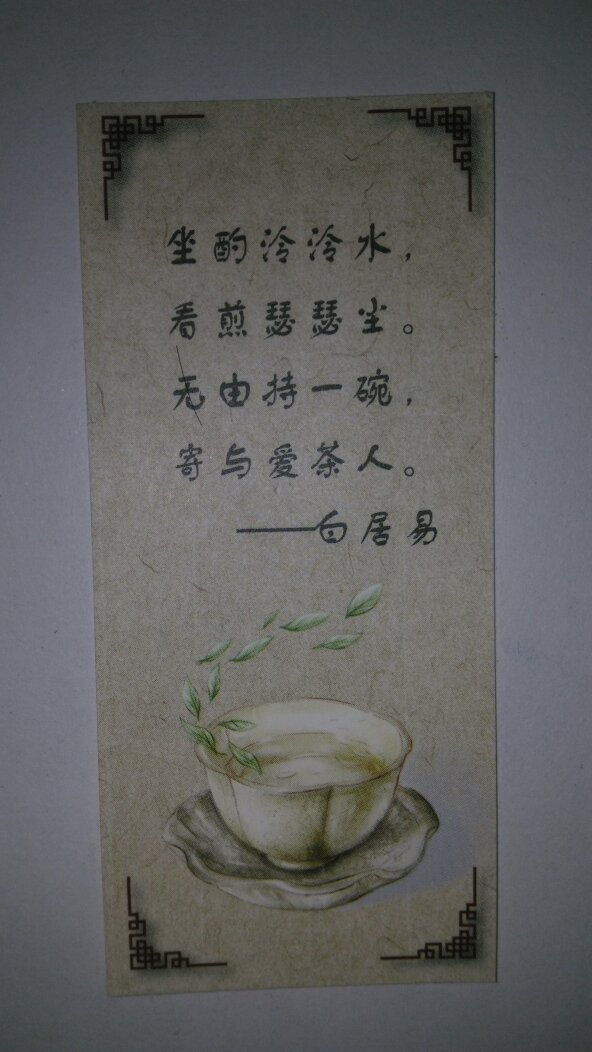 坐酌泠泠水，
看煎瑟瑟尘。
无由持一碗，
寄与爱茶人。
——白居易